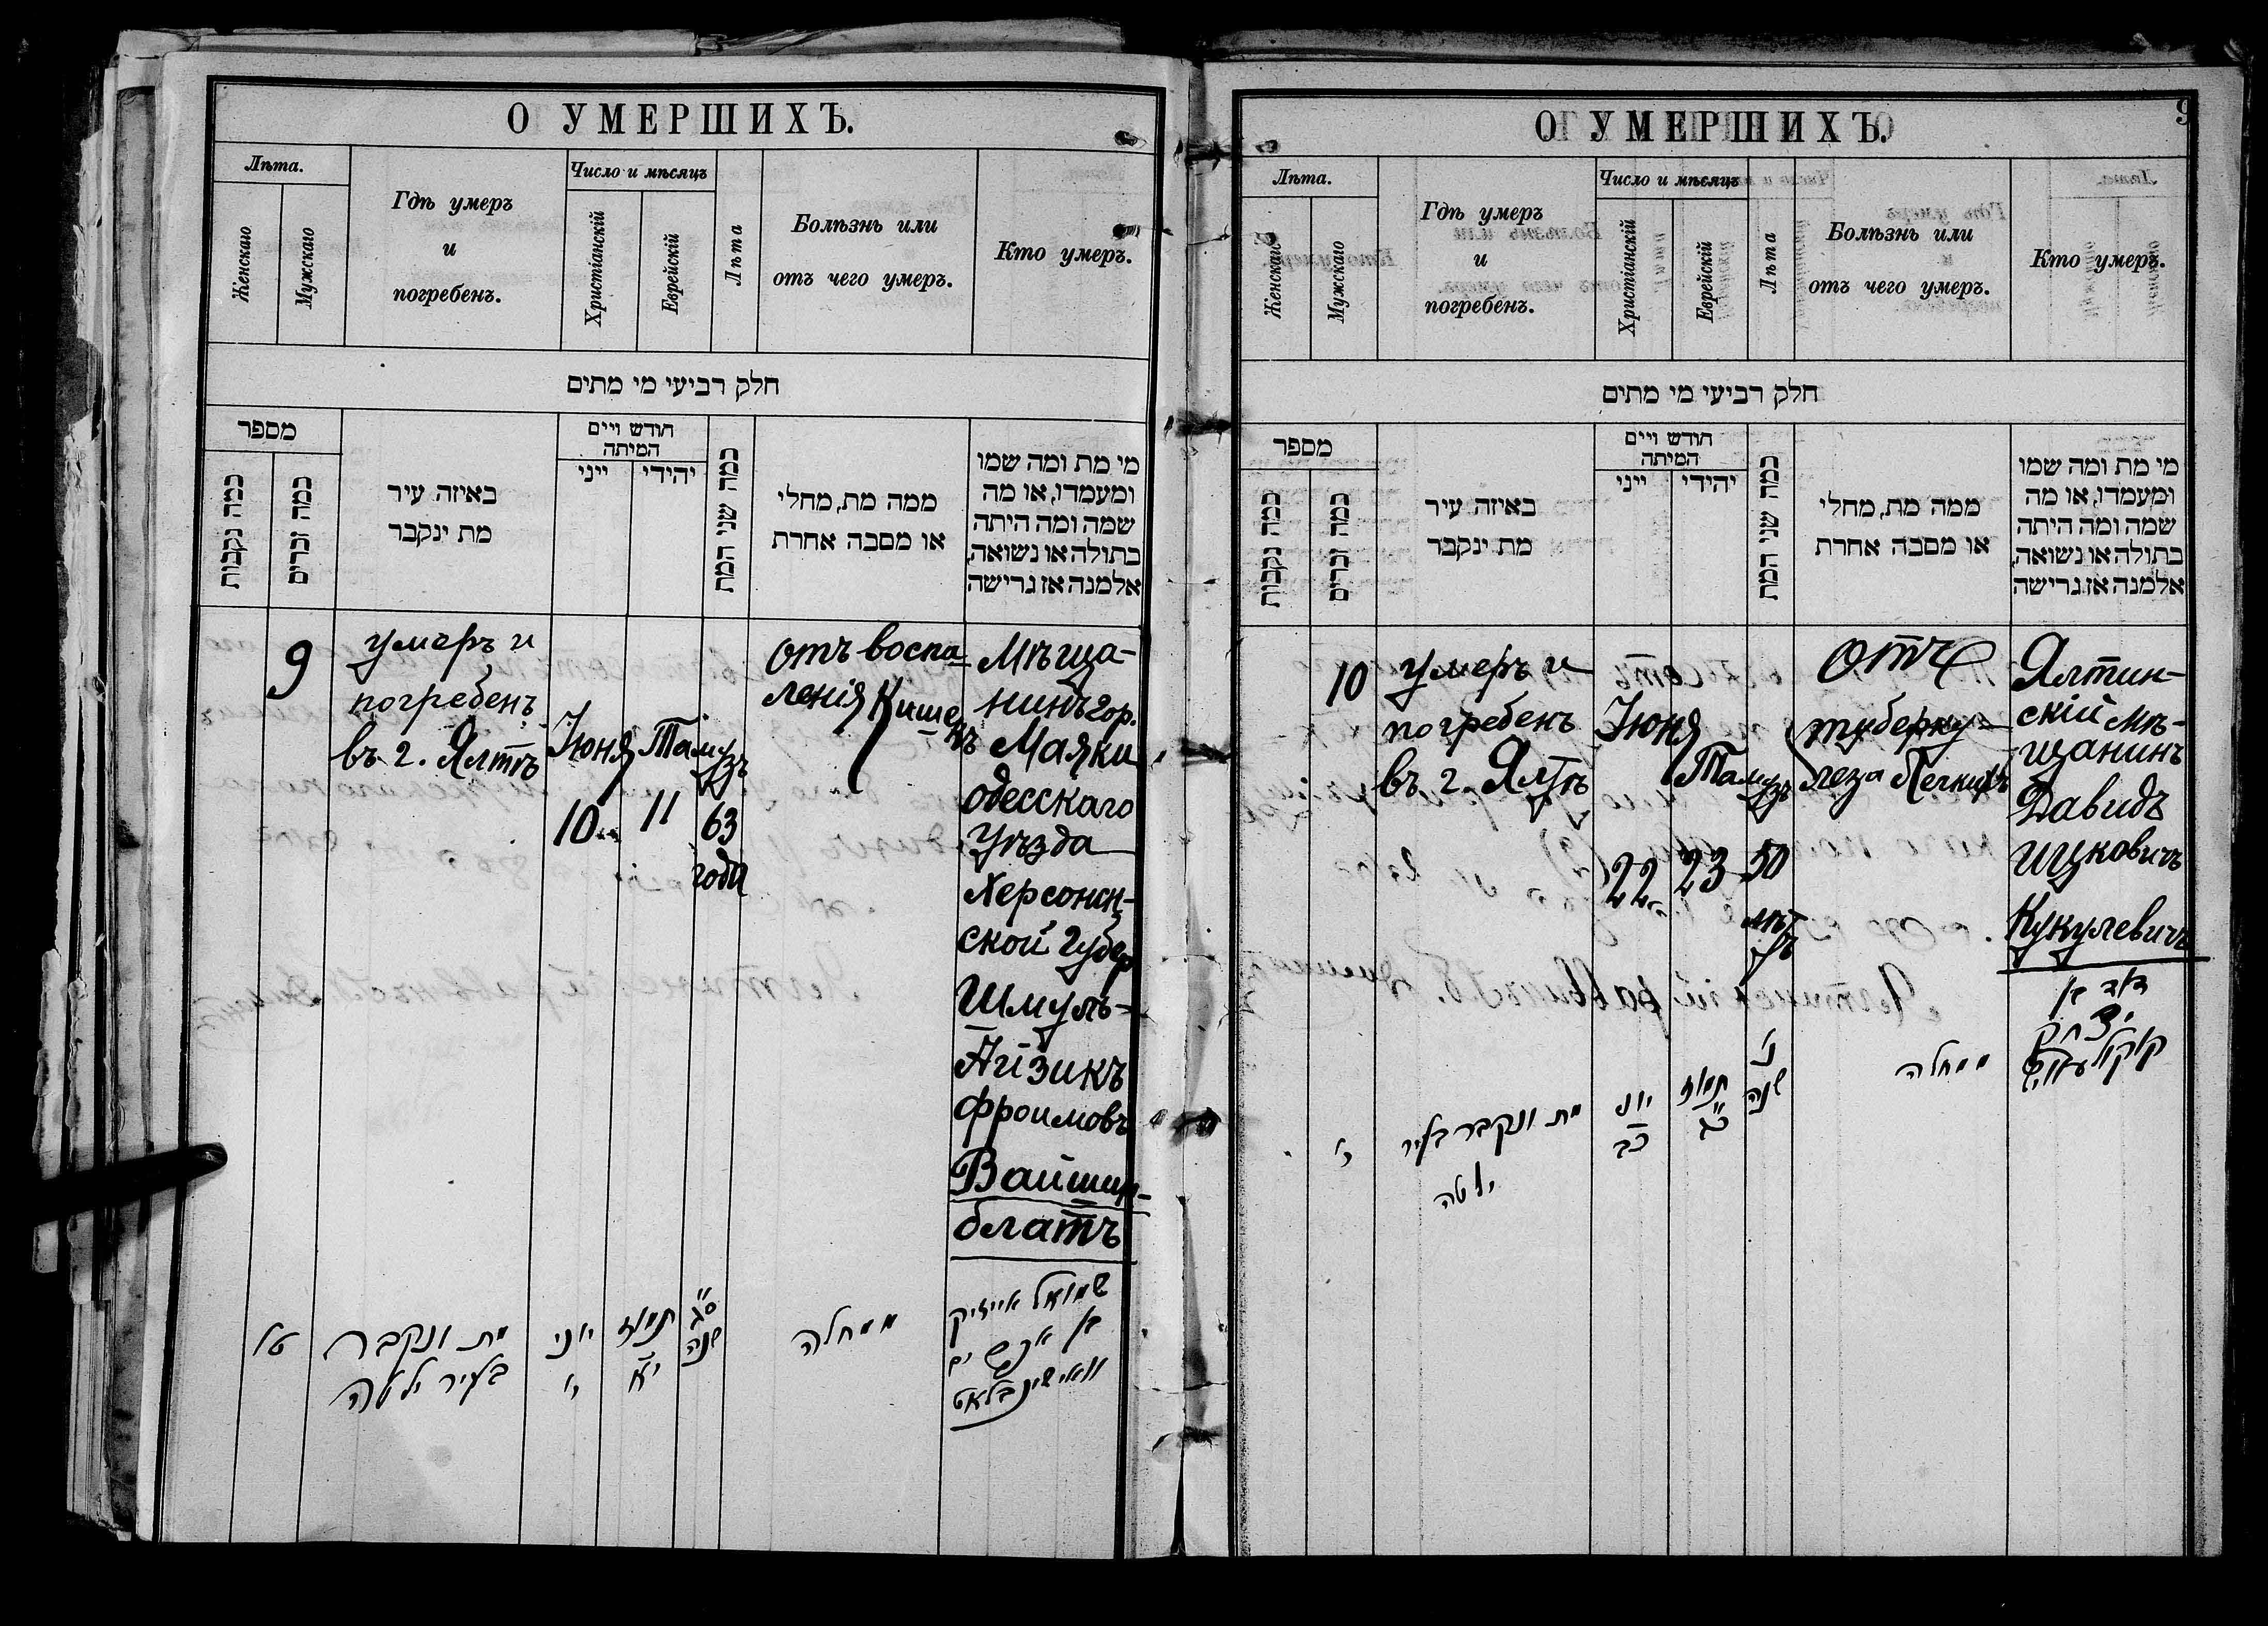 О УМЕРШИХЪ.
Лѣта.
Женскаго
Мужскаго
Гдѣ умеръ
и
погребенъ.
Число и мѣсяцъ
Христіанскій
Еврейскій
Лѣта
Болѣзнь или
отъ чего умеръ.
Кто умеръ.
חלק רביעי מי מתים
מספר
כמה נקבות
כמה זכרים
באיזה עיר
מת ינקבר
חודש ויום
המיתה
ייני
יהידי
כמה שני המת
ממה מת, מחלי
או מסבה אחרת
מי מת ומה שמו
ומעמדו, או מה
שמה ומה היתה
בתולה או נשואה,
אלמנה או גרישה
9
умеръ и
погребенъ
въ г. Ялтѣ
Іюня
10
Тамузъ
11
63
года
отъ воспа
ленія Кишекъ
Мѣща-
нинъ гор.
Маяки
одесскаго
Уѣзда
Херсонн-
ской Губер
Шмуль-
Айзикъ
Фроимовъ
Вайшин-
блатъ
טו
מת ונקבר
בעיר ילטה
יוני
י
תמוז
יא
ס"ג
שנה
ממחלה
שמואל אייזיק
בן אפרים
וואישינבלאט
О УМЕРШИХЪ.
9
Лѣта.
Женскаго
Мужскаго
Гдѣ умеръ
и
погребенъ.
Число и мѣсяцъ
Христіанскій
Еврейскій
Лѣта
Болѣзнь или
отъ чего умеръ.
Кто умеръ.
חלק רביעי מי מתים
מספר
כמה נקבות
כמה זכרים
באיזה עיר
מת ינקבר
חודש ויום
המיתה
ייני
יהידי
כמה שני המת
ממה מת, מחלי
או מסבה אחרת
מי מת ומה שמו
ומעמדו, או מה
שמה ומה היתה
בתולה או נשואה,
אלמנה או גרישה
10
умеръ и
погребенъ
въ г. Ялтѣ
Іюня
22
Тамузъ
23
50
лѣтъ
Отъ
туберку-
леза Легкихъ
Ялтин-
скій мѣ-
щанинъ
Давидъ
Ицковичъ
Кукулевичъ
י
מת ונקבר בעיר
ילטה
יוני
כב
תמוז
כ"ג
נ'
שנה
ממחלה
דוד בן
יצחק
קוקולעוויץ